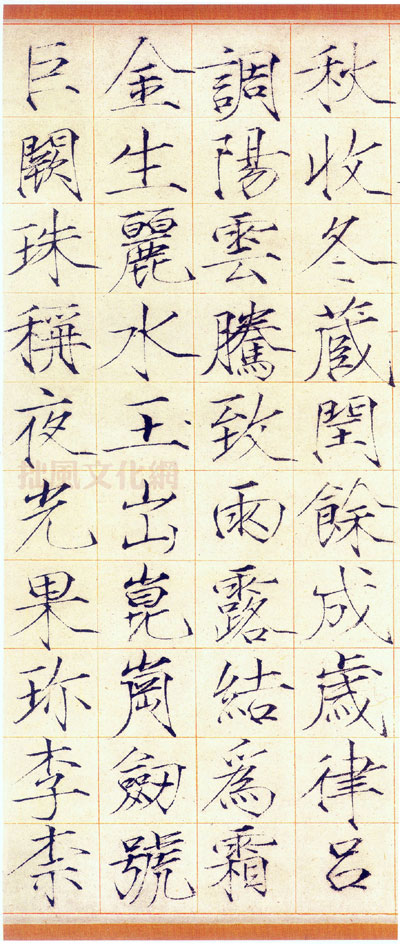 秋收冬蔵閏餘成歳律吕
調陽雲騰致雨露結為霜
金生麗水玉出崑崗劒號
巨闕珠稱夜光果珎李柰
拙風文化網